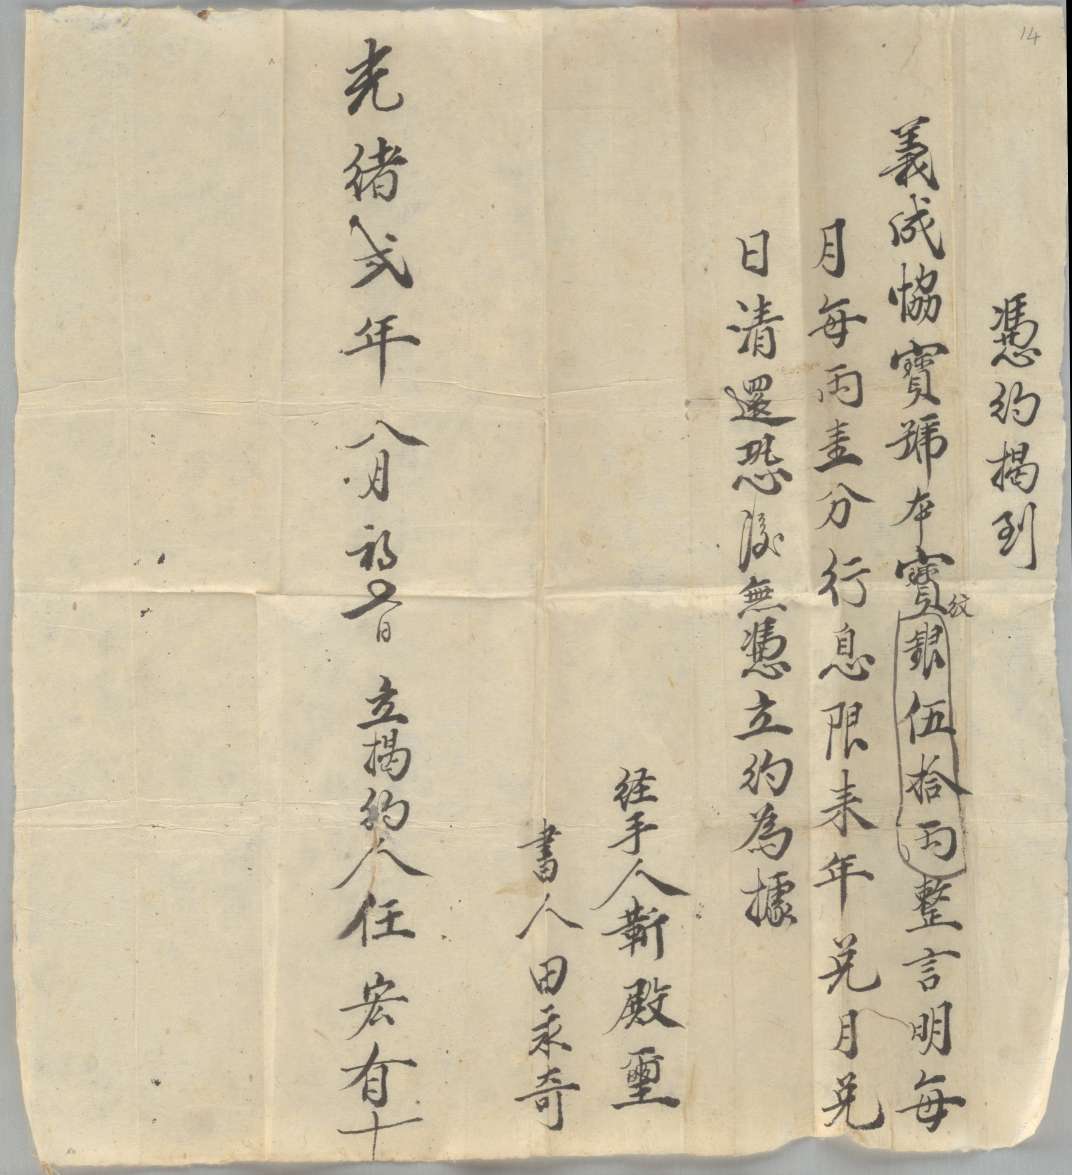 憑約揭到
義成協寶號本寶紋銀伍拾両整言明每
月每両壹分行息限来年兑月兑
日清還恐後無憑立約為據
経手人靳殿璽
書人田秉奇
光緒弍年八月初六日 立揭約人任宏有十
14